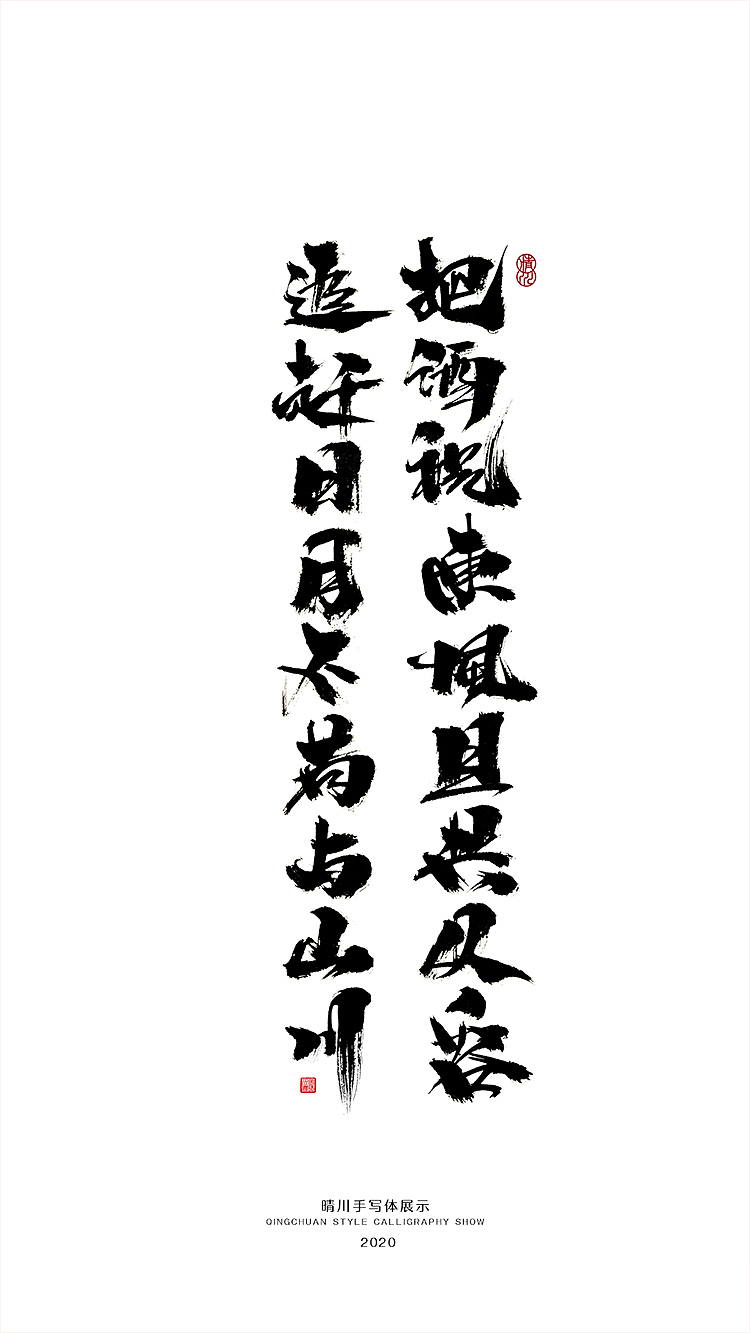 把酒祝東風且共从容
追赶日月不苟与山川
晴川
晴川手写体展示
QINGCHUAN STYLE CALLIGRAPHY SHOW
2020